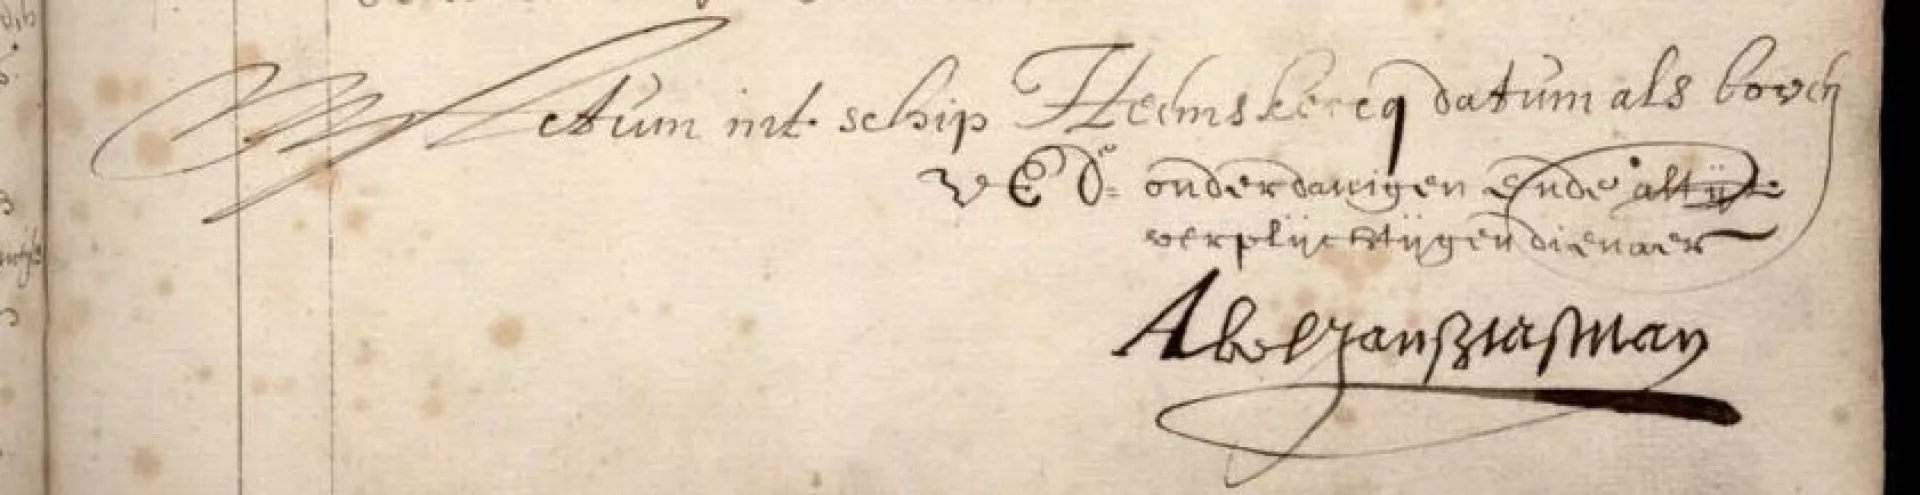 Actum int schip Heemskercq datum als boven
UEDe onderdanigen ende altijt
verplijchtijgen dienaer
Abel Jansz tasman